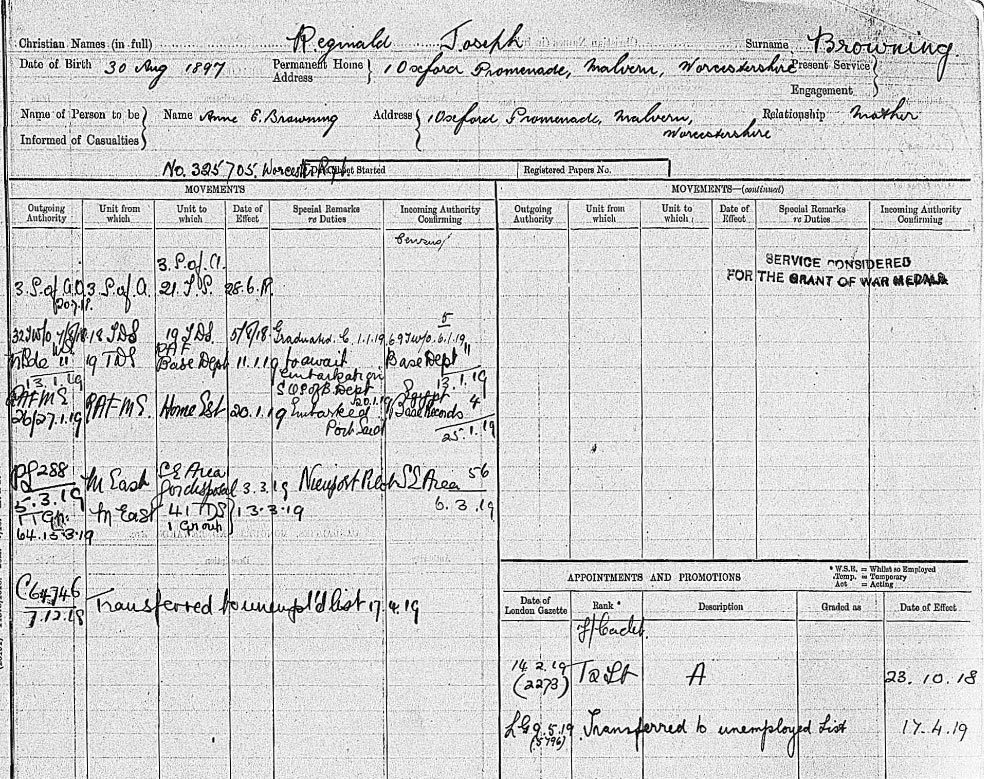 Christian Names (in full) Reginald Joseph Surname Browning
Date of Birth 30 Aug 1897 Permanent Home Address 1 Oxford Promenade, Malvern, Worcestershire Present Service Engagement
Name of Person to be Informed of Casualties Name Anne E. Browning Address 1 Oxford Promenade, Malvern, Worcestershire Relationship Mother
No. 325705. Started Registered Papers No.
MOVEMENTS MOVEMENTS—(continued)
Outgoing Authority Unit from which Unit to which Date of Effect Special Remarks re Duties Incoming Authority Confirming Outgoing Authority Unit from which Unit to which Date of Effect Special Remarks re Duties Incoming Authority Confirming
SERVICE CONSIDERED
FOR THE GRANT OF WAR MEDALS
3. S. of A.
3 S. of A. 28.6.18.
18 TDS 19 TDS. 5/8/18. Graduated. C. 1.1.19
19 TDS RAF Base Dept 11.1.19 to await embarkation Base Dept 11
13.1.19 13.1.19
RAF M.E. RAF M.E. Home Est 20.1.19 Embarked Port Said 20.1.19 Egypt Base Records 4
26/27.1.19 25.1.19
288 M East S.E Area for disposal 3.3.19 Nieuport Pilot S.E Area 56
5.3.19 6.3.19
M East 41 TDS 1 Group 13.3.19
64.15.3.19
C64746
7.12.18 Transferred to unempl'd list 17.4.19
* W.S.E. = Whilst so Employed
Temp. = Temporary
Act = Acting
APPOINTMENTS AND PROMOTIONS
Date of London Gazette Rank * Description Graded as Date of Effect
F/Cadet.
14.2.19 (2273) 2 Lt A 23.10.18
LG 9.5.19 (5796) Transferred to unemployed List 17.4.19